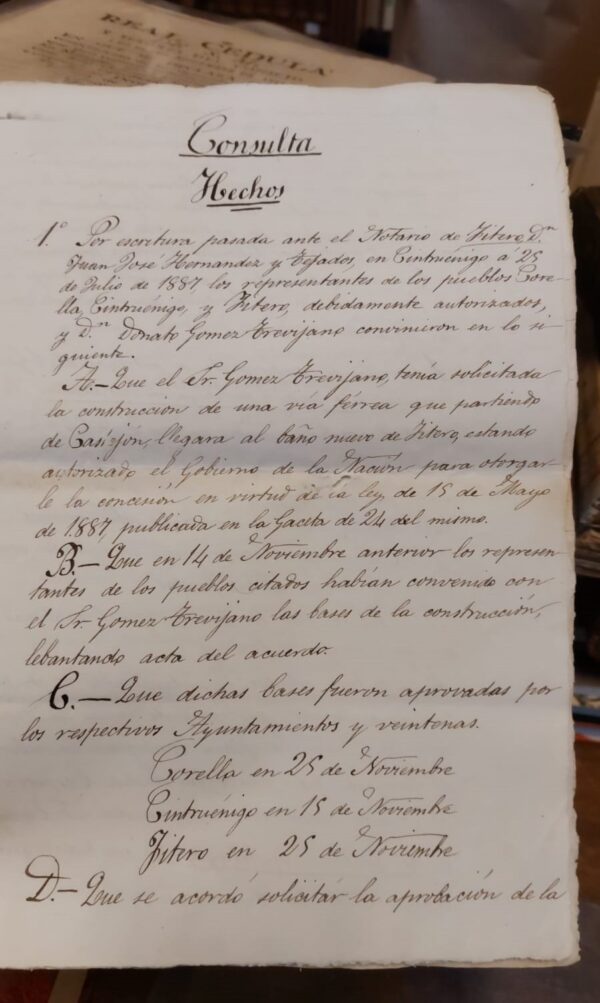 REAL CEDULA
Consulta
Hechos
1.º Por escritura pasada ante el Notario de Fitero, D.n
Juan José Hernandez y Tejados, en Cintruénigo á 25
de Julio de 1887 los representantes de los pueblos Core-
lla, Cintruénigo, y Fitero, debidamente autorizados,
y D.n Donato Gomez Trevijano convinieron en lo si-
guiente.
A.- Que el Sr. Gomez Trevijano, tenía solicitada
la construccion de una vía férrea que partiendo
de Castejón, llegara al baño nuevo de Fitero, estando
autorizado el Gobierno de la Nación para otorgar-
le la concesión en virtud de la ley, de 15 de Mayo
de 1.887, publicada en la Gaceta de 24 del mismo.
B.- Que en 14 de Noviembre anterior los represen-
tantes de los pueblos citados habían convenido con
el Sr. Gomez Trevijano las bases de la construcción,
lebantando acta del acuerdo.
C.- Que dichas bases fueron aprovadas por
los respectivos Ayuntamientos y veintenas.
Corella en 25 de Noviembre
Cintruénigo en 15 de Noviembre
Fitero en 25 de Noviembre
D.- Que se acordó solicitar la aprobación de la